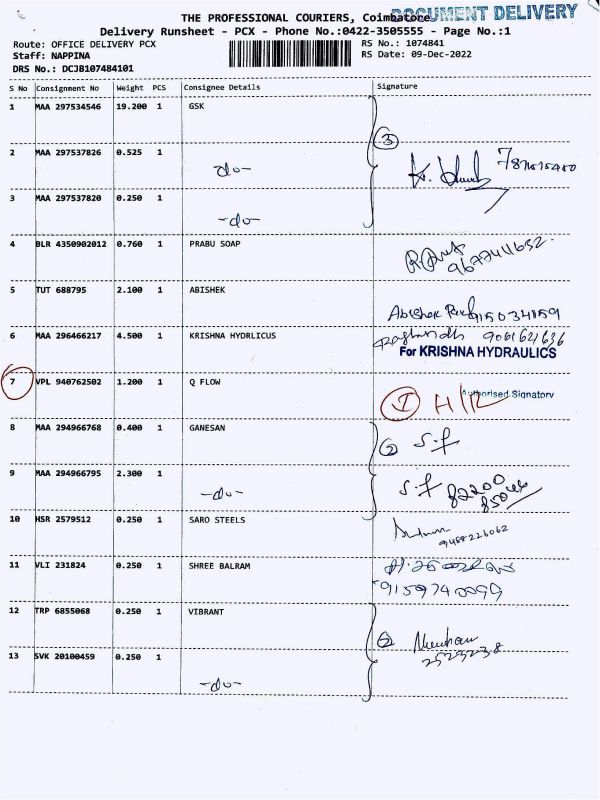 THE PROFESSIONAL COURIERS, Coimbatore
DOCUMENT DELIVERY
Delivery Runsheet - PCX - Phone No.:0422-3505555 - Page No.:1
Route: OFFICE DELIVERY PCX RS No.: 1074841
Staff: NAPPINA RS Date: 09-Dec-2022
DRS No.: DCJB107484101
S No Consignment No Weight PCS Consignee Details Signature
1 MAA 297534546 19.200 1 GSK
3
2 MAA 297537826 0.525 1 -do-
3 MAA 297537820 0.250 1 -do-
4 BLR 4350902012 0.760 1 PRABU SOAP
5 TUT 688795 2.100 1 ABISHEK
Abishek
6 MAA 296466217 4.500 1 KRISHNA HYDRLICUS
For KRISHNA HYDRAULICS
7 VPL 940762502 1.200 1 Q FLOW
Authorised Signatory
8 MAA 294966768 0.400 1 GANESAN
2 S.f
9 MAA 294966795 2.300 1 -do-
S.f
10 HSR 2579512 0.250 1 SARO STEELS
9488226062
11 VLI 231824 0.250 1 SHREE BALRAM
12 TRP 6855068 0.250 1 VIBRANT
2
13 SVK 20100459 0.250 1 -do-